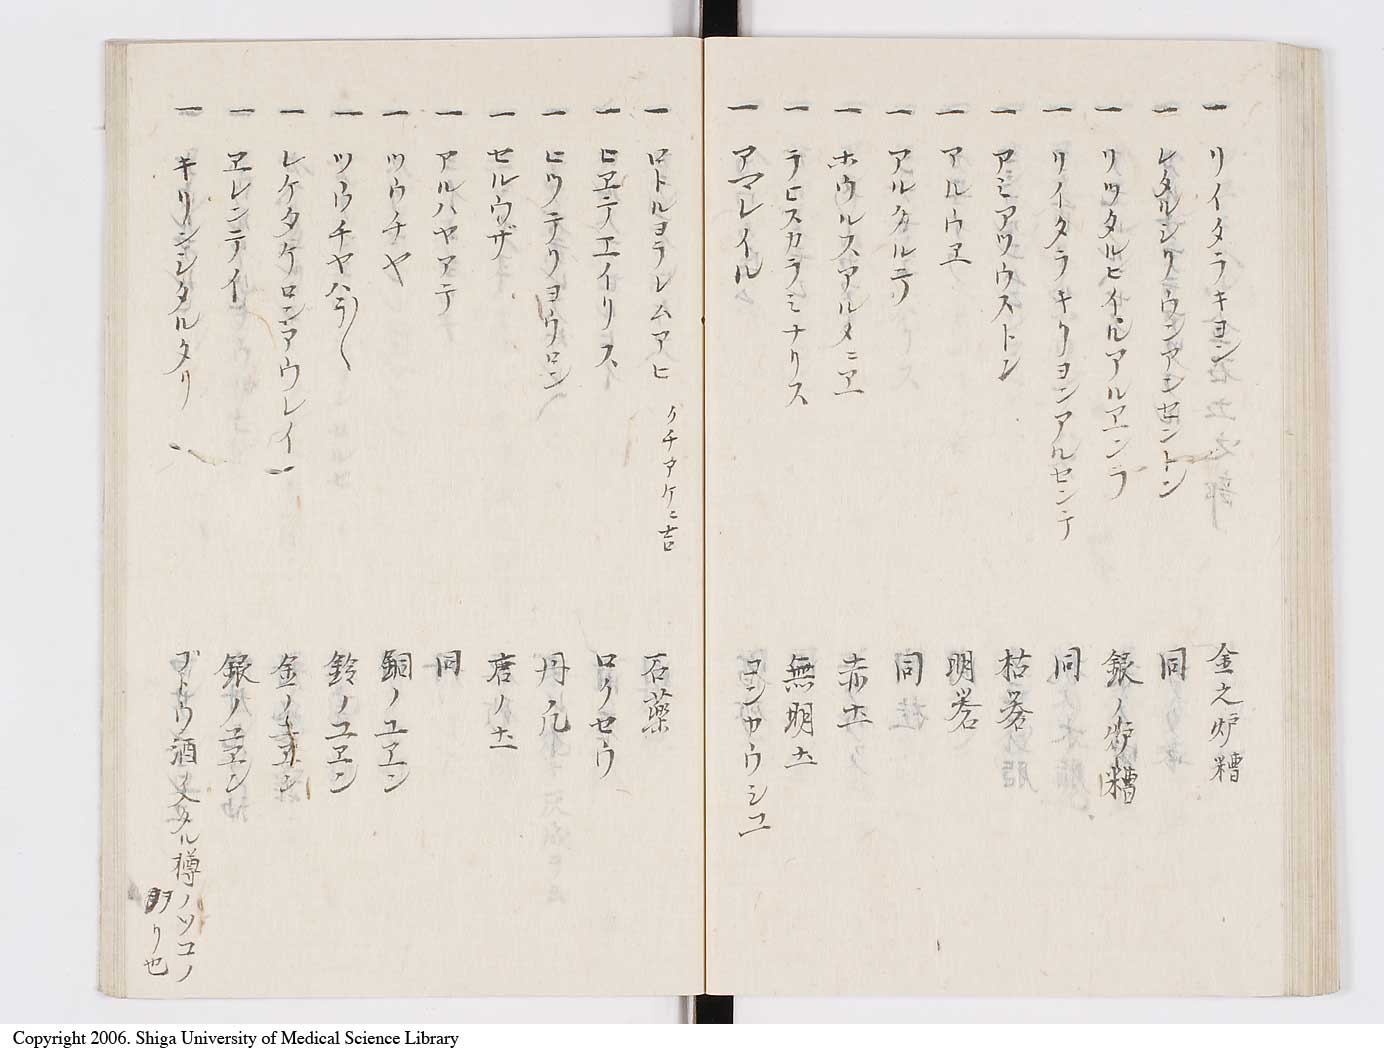 一 リイタラキヨン 金之炉糟
一 レタルシリウンアンセントン 同
一 リツタルヒイルアルヱンラ 銀ノ炉糟
一 リイタラキリヨンアルセンテ 同
一 アミアツウストン 枯礬
一 アルウヱ 明礬
一 アルカルテ 同
一 ホウルスアルメニヱ 赤土
一 ラヒスカラミナリス 無明土
一 アマレイル コンカウシユ
一 ロトルヨラレムアヒ クチアケニ吉 石薬
一 ヒヱテエイリス ロクセウ
一 ヒツテリヨウロン 丹凡
一 セルウザ 唐ノ土
一 アルハヤアテ 同
一 ツウチヤ 銅ノユヱン
一 ツウチヤハ 鈴ノユヱン
一 レケタケロンアウレイ 金ノユヱン
一 ヱレンテイ 銀ノユヱン
一 キリンシタルタリ ブトウ酒入タル樽ノツユノ
リ也
Copyright 2006. Shiga University of Medical Science Library